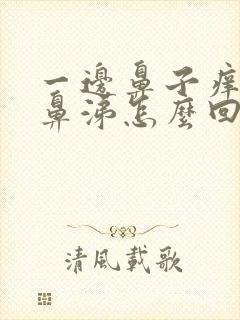 一邊鼻子癢
鼻涕怎麼回
清風載歌